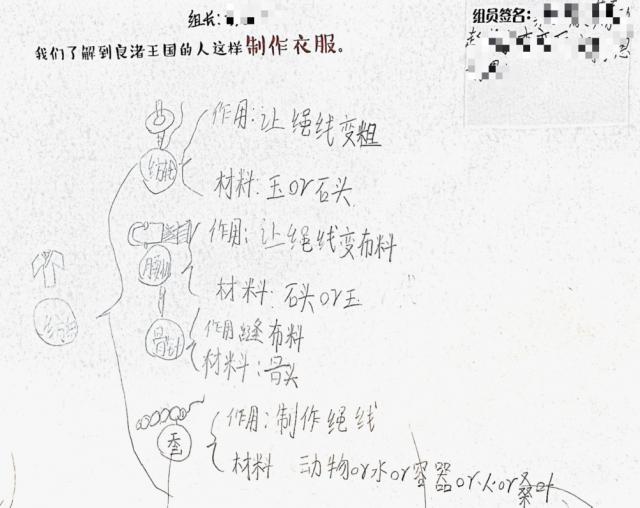 组长：
组员签名：
我们了解到良渚王国的人这样制作衣服。
作用：让绳线变粗
纺轮
材料：玉or石头
作用：让绳线变布料
腰机
材料：石头or玉
作用缝布料
骨针
材料：骨头
作用：制作绳线
蚕
材料 动物or水or容器or火or桑叶